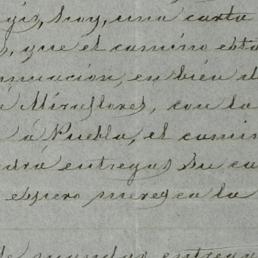 hoy, una carta
, que el camino esta
nuacion, en bien d
Miraflores, con la
á Puebla, el cami
drá entregar su ca
espero meresca la
entregar